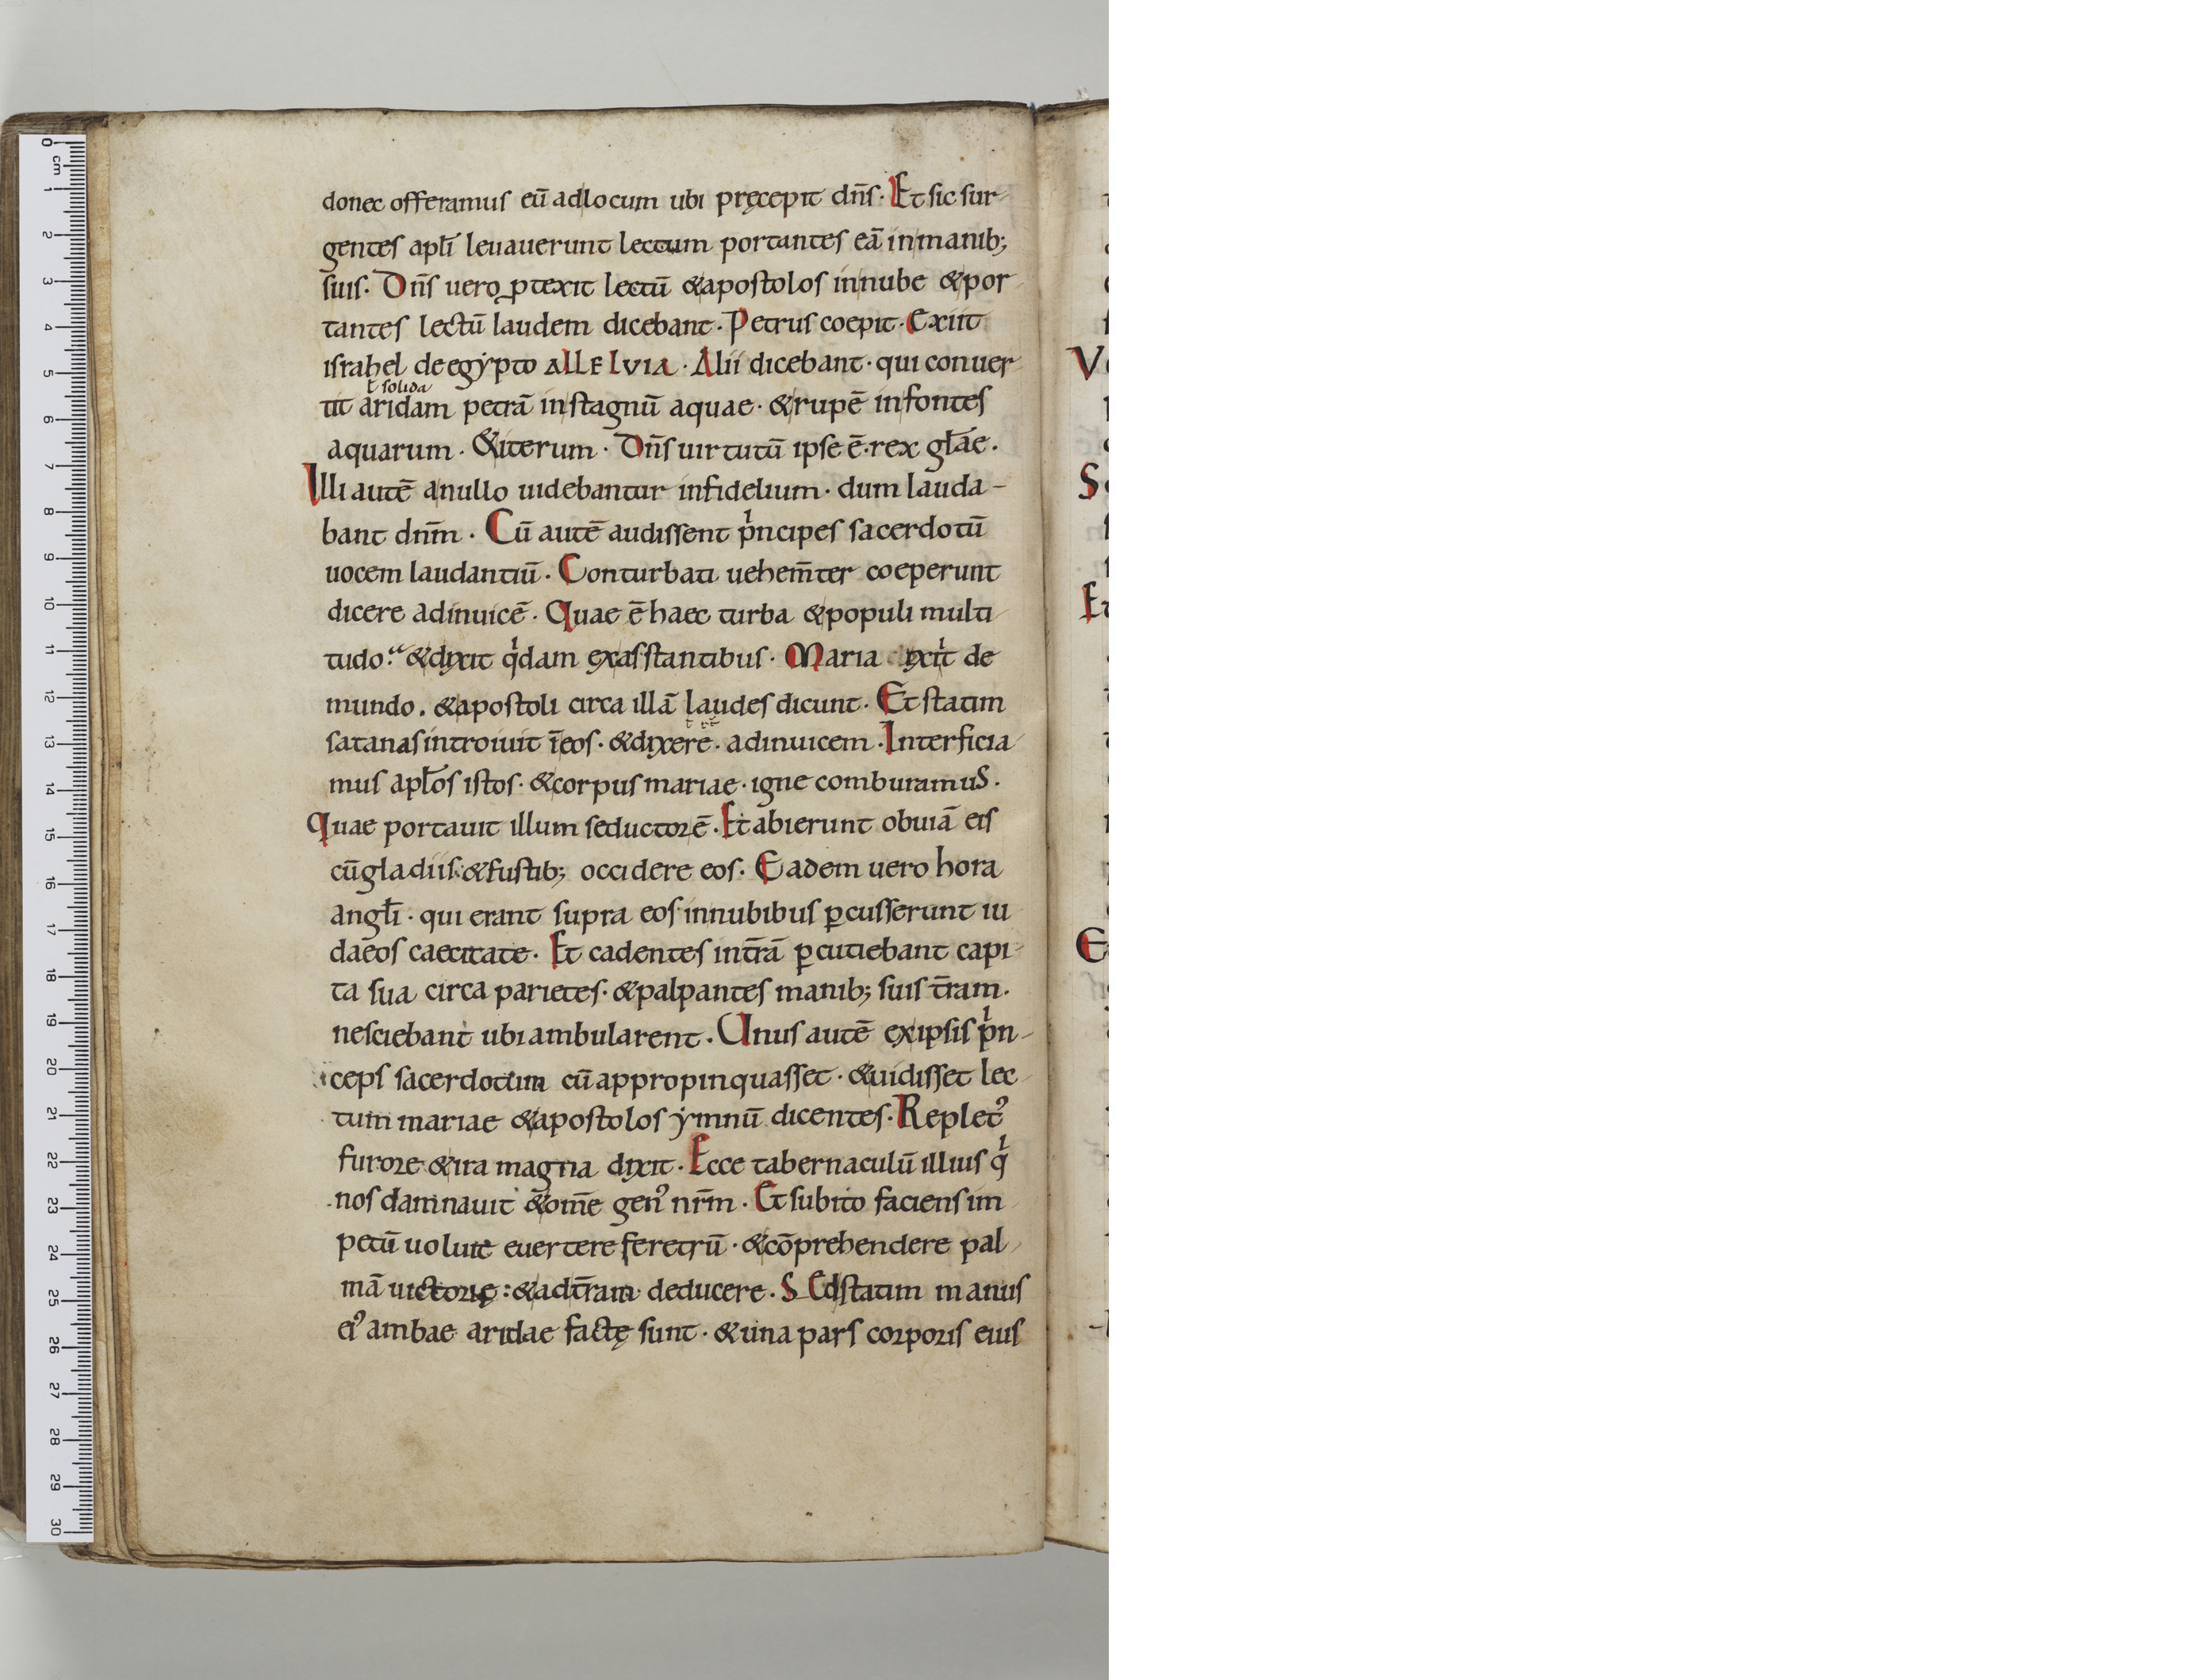 donec offeramus eū adlocum ubi pręcepit dn̄s· Et sic sur-
gentes apl̄i leuauerunt lectum portantes eā inmanib;
suis· Dn̄s uero ꝓtexit lectū &apostolos innube &por-
tantes lectū laudem dicebant· Petrus coepit· Exiit
israhel de egẏpto ALLELVIA· Alii dicebant· qui conuer-
ł solida
tit aridam petrā instagnū aquae· &rupē infontes
aquarum· &iterum· Dn̄s uirtutū ipse ē· rex gl̄ae.
Illi autē anullo uidebantur infidelium· dum lauda-
bant dn̄m· Cū autē audissent pͥncipes sacerdotū
uocem laudantiū· Conturbati uehem̄ter coeperunt
dicere adinuicē· Quae ē haec turba &populi multi-
tudo· &dixit qͥdam exasstantibus· Maria ixit de
mundo. &apostoli circa illā laudes dicunt· Et statim
satanas introiuit īeos· &dixerē· adinuicem· Interficia-
mus apl̄os istos· &corpus mariae· igne comburamuS.
Quae portauit illum seductorē· Et abierunt obuiā eis
cū gladiis· &fustib; occidere eos· Eadem uero hora
angl̄i· qui erant supra eos innubibus ꝑcusserunt iu-
daeos caecitate· Et cadentes int̄rā ꝑcutiebant capi-
ta sua circa parietes· &palpantes manib; suis t̄ram.
nesciebant ubi ambularent· Unus autē exipsis pͥn-
ceps sacerdotum cū appropinquasset· &uidisset lec-
tum mariae &apostolos ẏmnū dicentes· Replet᾿
furore &ira magna dixit· Ecce tabernaculū illius qͥ
nos damnauit &om̄e gen᾿ nr̄m· Et subito faciens im-
petū uoluit euertere feretrū· &cōprehendere pal-
mā uictorię: &adt̄ram deducere. S Ed statim manus
ei᾿ ambae aridae factę sunt· &una pars corporis eius